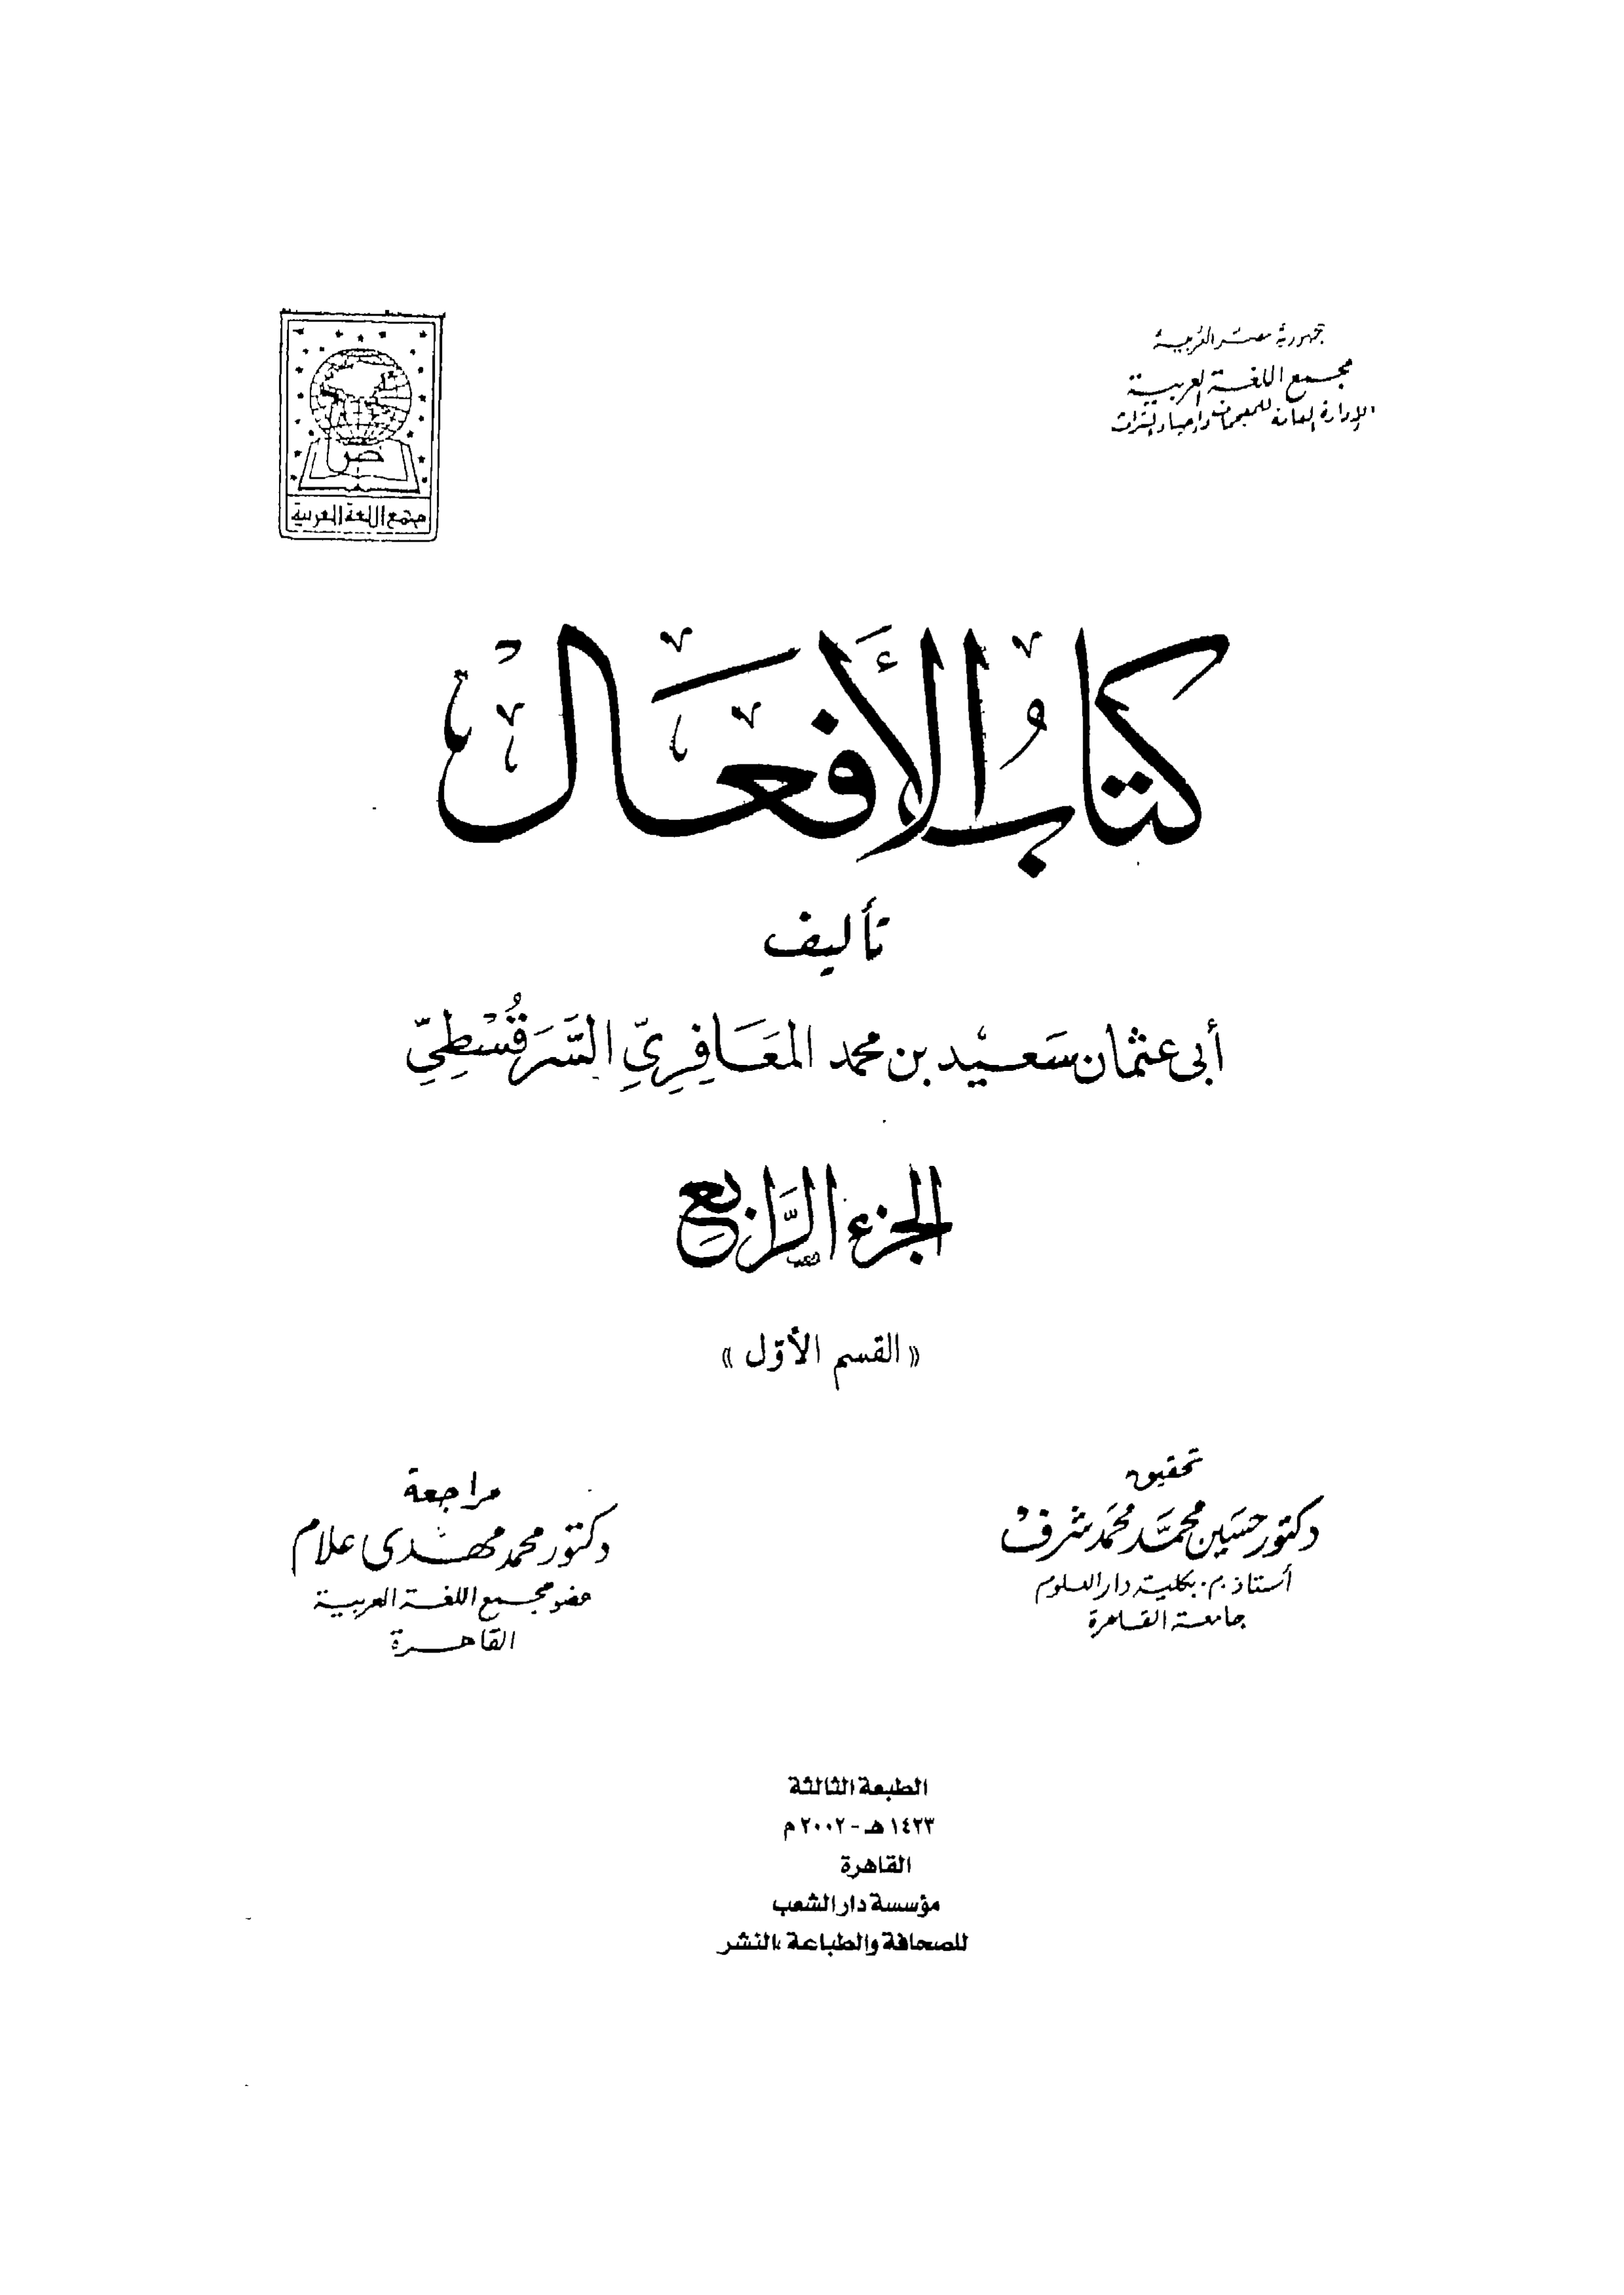 جمهورية مصر العربية
مجمع اللغة العربية
الإدارة العامة للمعجمات وإحياء التراث
ص
مجمع اللغة العربية
كتابُ الأَفعال
تأليف
أبى عثمان سَعيْد بن محمد المعَافِرِيِّ السَّرَقُسْطِيِّ
الجزء الرَّابع
« القسم الأوّل »
تحقيق
دكتور حسَين محمَّد محمَّد شرف
أستاذ م. بكلية دار العلوم
جامعة القاهرة
مراجعة
دكتور محمد مهدى علام
عضو مجمع اللغة العربية
القاهرة
الطبعة الثالثة
١٤٢٣ هـ - ٢٠٠٢ م
القاهرة
مؤسسة دار الشعب
للصحافة والطباعة والنشر